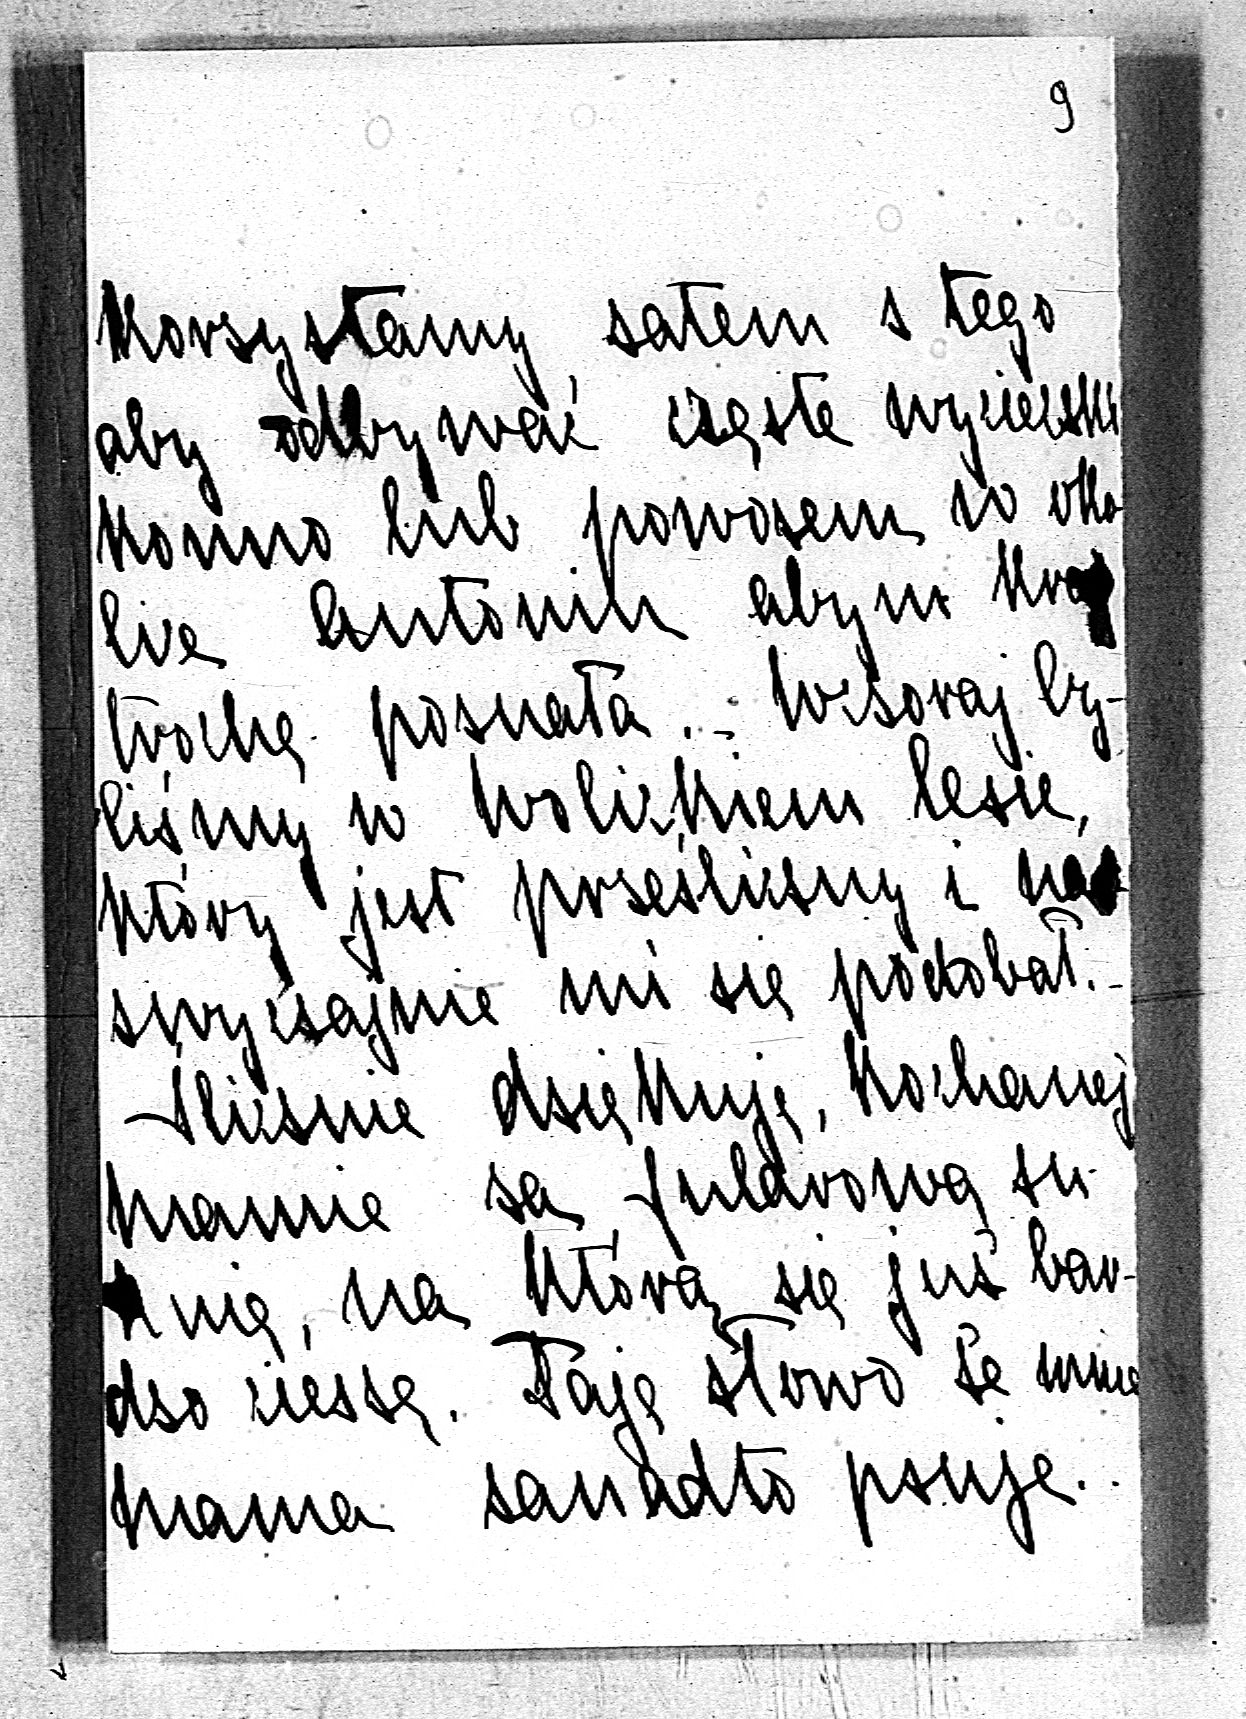 9
Korzystamy zatem z tego
aby odbywać częste wycieczki
konno lub powozem w oko
lice Antonin abym kraj
trochę poznała. - Wczoraj by-
liśmy w Wolickiem lesie,
który jest prześliczny i nad
zwyczajnie mi się podobał. -
Ślicznie dziękuję, kochanej
mamie za futrową su
knię, na którą się już bar-
dzo cieszę. Daję słowo że mnie
mama zanadto psuje. .